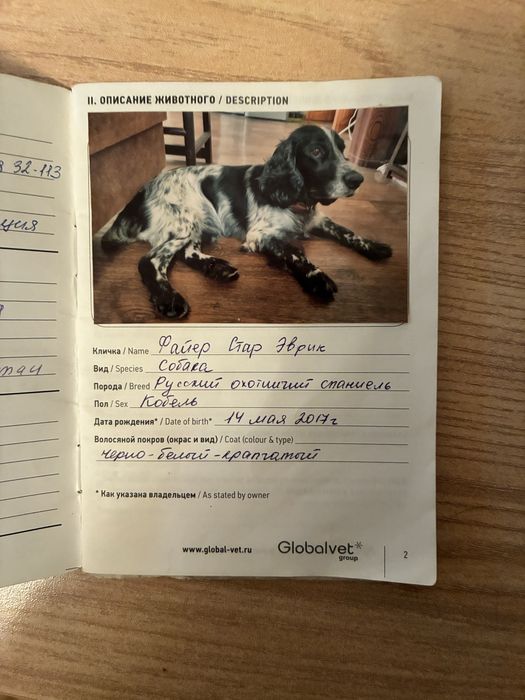 я 32-113
ция
II. ОПИСАНИЕ ЖИВОТНОГО / DESCRIPTION
Кличка / Name Файер Стар Эврик
Вид / Species Собака
Порода / Breed Русский охотничий спаниель
Пол / Sex Кобель
Дата рождения* / Date of birth* 14 мая 2017г
Волосяной покров (окрас и вид) / Coat (colour & type)
черно-белый-крапчатый
* Как указана владельцем / As stated by owner
www.global-vet.ru Globalvet* group 2